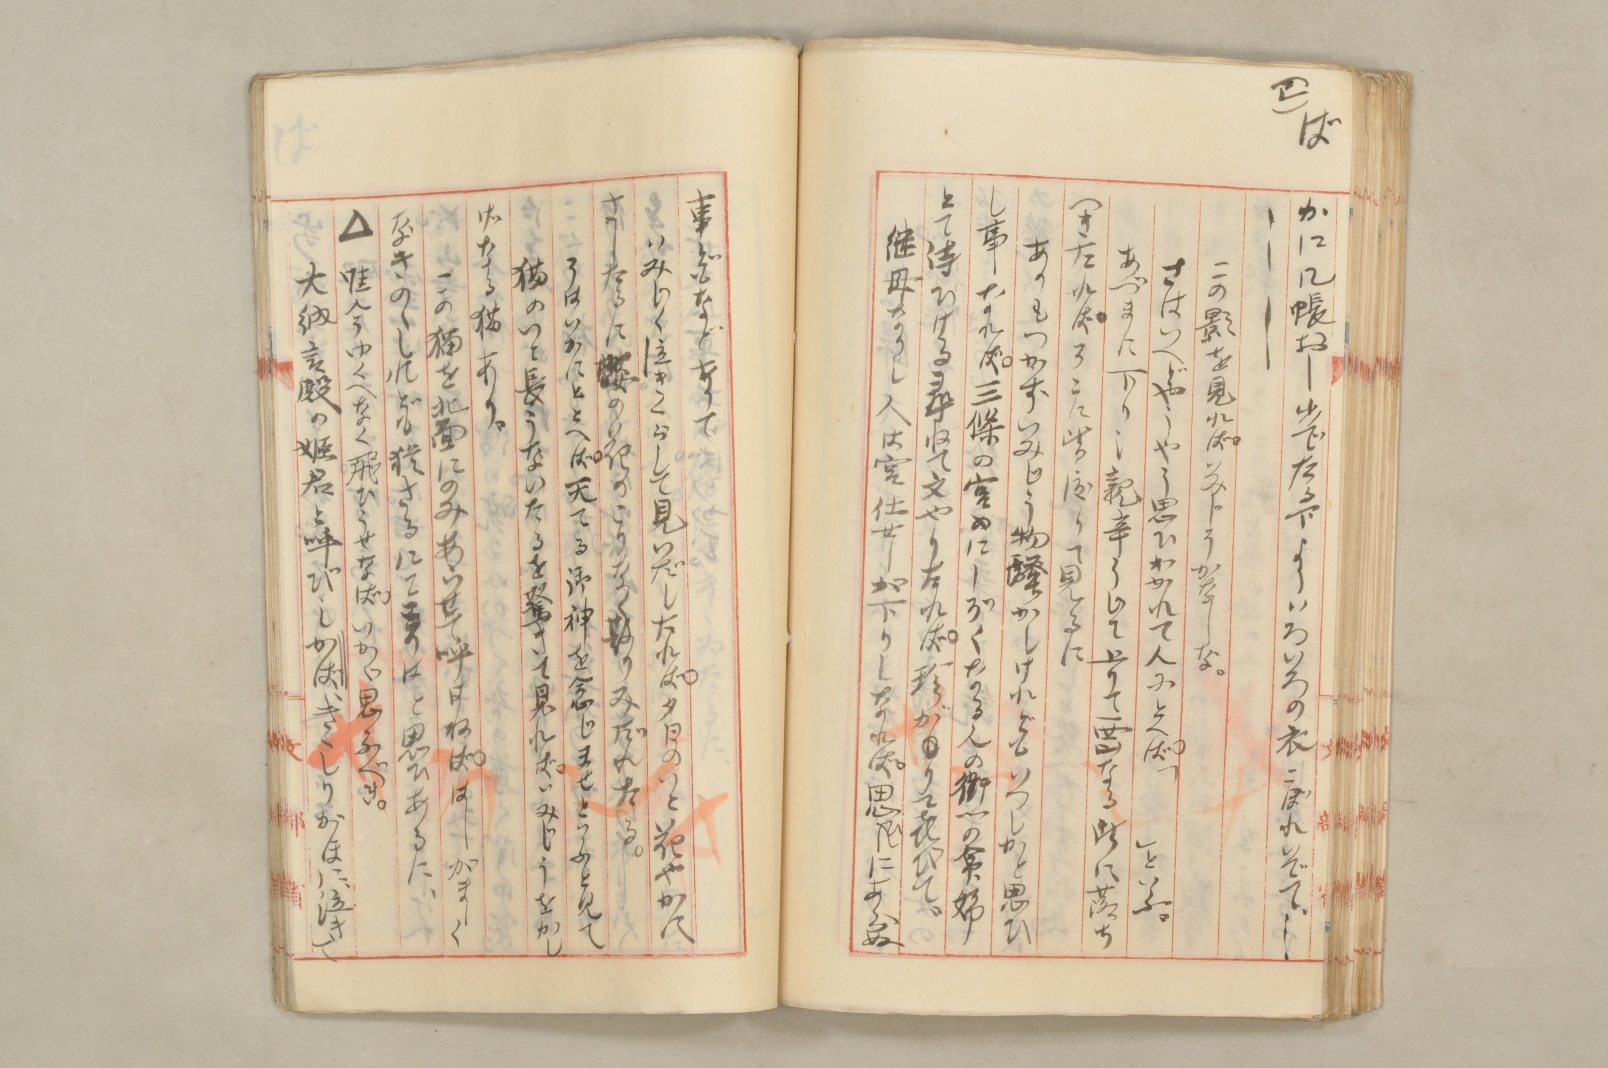 (四)ば
かに几帳おし出でたる下よりいろいろの衣こぼれいでて、
この影を見れば。いみじうかなしな。
さはいへどやうやう思ひわかれて人にとへば。
といふ。
あづまに下りし親辛うじて上りて西山なる所に落ち
つきたれば。そこに皆渡りて見るに
ありもつかずいみじう物騒がしけれどもいつしかと思ひ
し事なれば。三條の宮わにしぞくなる人の衛門の命婦
とて侍ひける尋ねて文やりたれば。珍しがりて喜びて。
継母なりし人は宮仕せしが下りしなれば。思ひしにあらぬ
事どもなどありて
いみじく泣きくらして見いだしたれば。夕日のいと花やかに
さしたるに桜の花のこりなく散りみだれたる。
こはいかにととへば。天てる御神を念じませといふと見て
猫のいと長うないたるを驚きて見れば。いみじうをかし
げなる猫あり。
この猫を北面にのみあらせて呼ばねば。かしがましく
なきののしれども猶さるにて事はと思ひあるに、
△ 唯今ゆくへなく飛びうせなば。いかが思ふべき。
大納言殿の姫君と呼びしかば、ききしりがほに泣きて